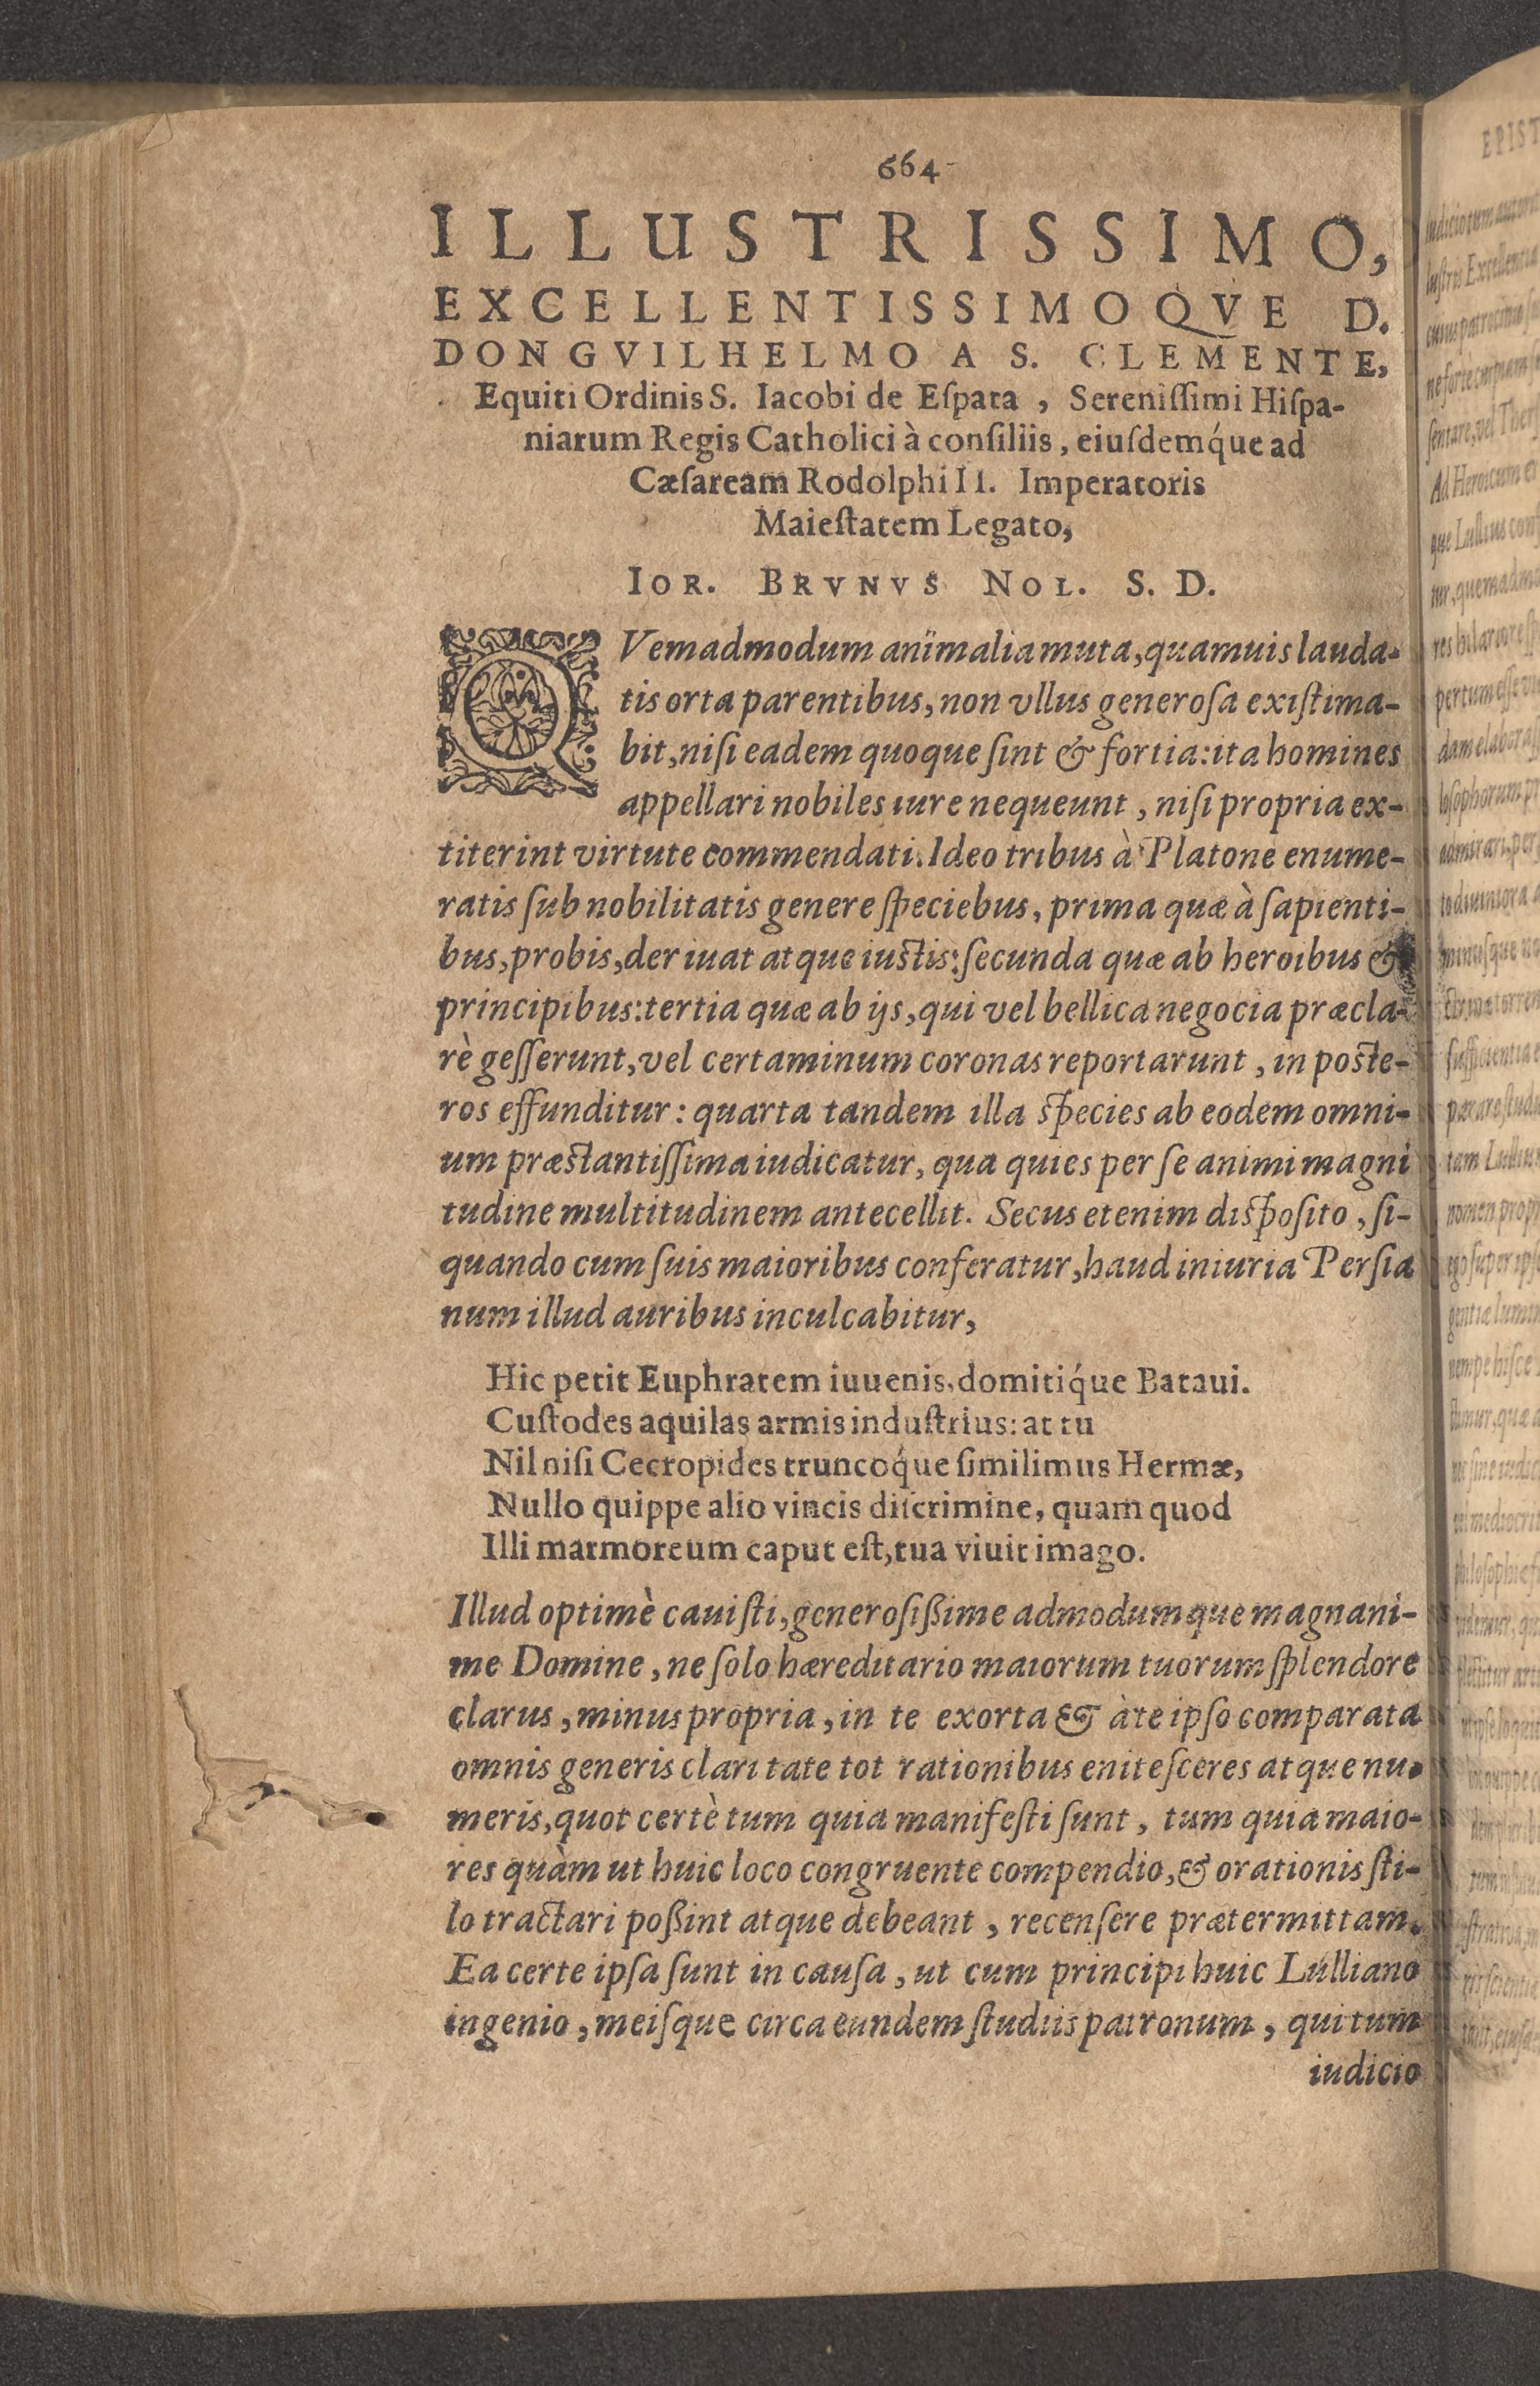 664
ILLUSTRISSIMO,
EXCELLENTISSIMOQVE D.
DON GVILHELMO A S. CLEMENTE,
Equiti Ordinis S. Iacobi de Eſpata, Sereniſſimi Hiſpa-
niarum Regis Catholici à conſiliis, eiuſdemq́ue ad
Cæſaream Rodolphi II. Imperatoris
Maieſtatem Legato,
IOR. BRVNVS NOL. S. D.
QVemadmodum animalia muta, quamuis lauda-
tis orta parentibus, non vllus generoſa exiſtima-
bit, niſi eadem quoque ſint & fortia: ita homines
appellari nobiles iure nequeunt, niſi propria ex-
titerint virtute commendati. Ideo tribus à Platone enume-
ratis ſub nobilitatis genere ſpeciebus, prima quæ à ſapienti-
bus, probis, deriuat atque iuſtis: ſecunda quæ ab heroibus &
principibus: tertia quæ ab ijs, qui vel bellica negocia præcla-
rè geſſerunt, vel certaminum coronas reportarunt, in poſte-
ros effunditur: quarta tandem illa ſpecies ab eodem omni-
um præſtantiſſima iudicatur, qua quies per ſe animi magni
tudine multitudinem antecellit. Secus etenim diſpoſito, ſi-
quando cum ſuis maioribus conferatur, haud iniuria Perſia
num illud auribus inculcabitur,
Hic petit Euphratem iuuenis, domitiq́ue Bataui.
Cuſtodes aquilas armis induſtrius: at tu
Nil niſi Cecropides truncoq́ue ſimilimus Hermæ,
Nullo quippe alio vincis diſcrimine, quam quod
Illi marmoreum caput eſt, tua viuit imago.
Illud optimè cauiſti, generoſißime admodumque magnani-
me Domine, ne ſolo hæreditario maiorum tuorum ſplendore
clarus, minus propria, in te exorta & à te ipſo comparata
omnis generis claritate tot rationibus eniteſceres atque nu-
meris, quot certè tum quia manifeſti ſunt, tum quia maio-
res quàm ut huic loco congruente compendio, & orationis ſti-
lo tractari poßint atque debeant, recenſere prætermittam.
Ea certe ipſa ſunt in cauſa, ut cum principi huic Lulliano
ingenio, meiſque circa eundem ſtudiis patronum, qui tum
iudicio